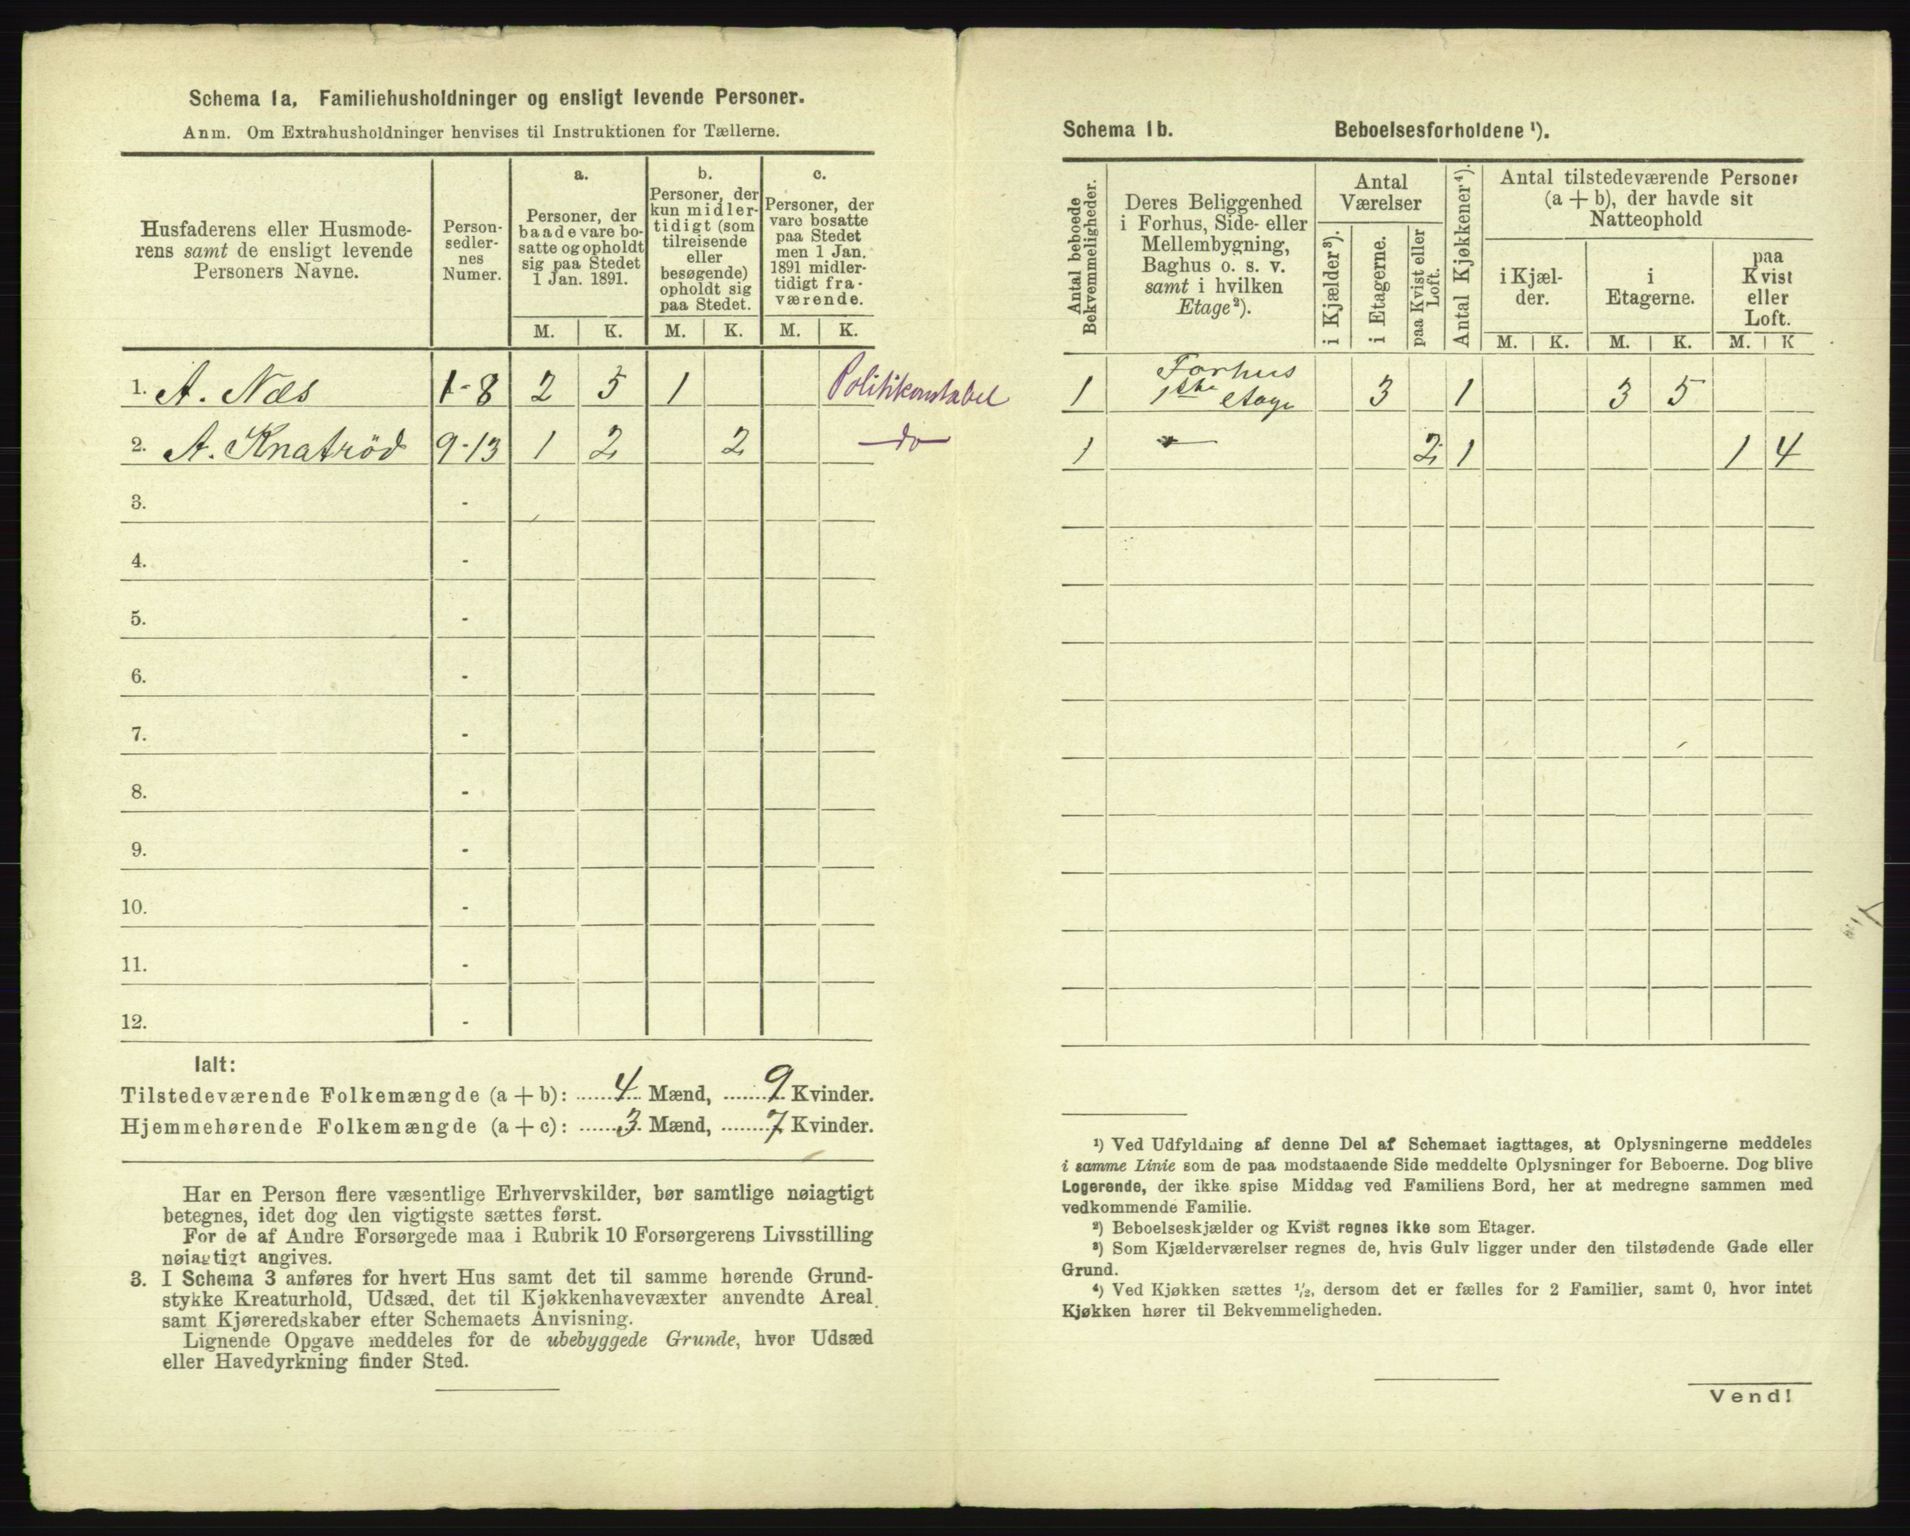 Schema 1a, Familiehusholdninger og ensligt levende Personer.
Anm. Om Extrahusholdninger henvises til Instruktionen for Tællerne.
Husfaderens eller Husmode-
rens samt de ensligt levende
Personers Navne.
Person-
sedler-
nes
Numer.
a.
Personer, der
baade vare bo-
satte og opholdt
sig paa Stedet
1 Jan. 1891.
b.
Personer, der
kun midler-
tidigt (som
tilreisende
eller
besøgende)
opholdt sig
paa Stedet.
c.
Personer, der
vare bosatte
paa Stedet
men 1 Jan.
1891 midler-
tidigt fra-
værende.
M. K. M. K. M. K.
1. A. Næs 1-8 2 5 1 Politikonstabel
2. A. Knatröd 9-13 1 2 2 do
3. -
4. -
5. -
6. -
7. -
8. -
9. -
10. -
11. -
12. -
Ialt:
Tilstedeværende Folkemængde (a + b): 4 Mænd, 9 Kvinder.
Hjemmehørende Folkemængde (a + c): 3 Mænd, 7 Kvinder.
Har en Person flere væsentlige Erhvervskilder, bør samtlige nøiagtigt
betegnes, idet dog den vigtigste sættes først.
For de af Andre Forsørgede maa i Rubrik 10 Forsørgerens Livsstilling
nøiagtigt angives.
3. I Schema 3 anføres for hvert Hus samt det til samme hørende Grund-
stykke Kreaturhold, Udsæd, det til Kjøkkenhavevæxter anvendte Areal
samt Kjøreredskaber efter Schemaets Anvisning.
Lignende Opgave meddeles for de ubebyggede Grunde, hvor Udsæd
eller Havedyrkning finder Sted.
Schema 1b. Beboelsesforholdene ¹).
Antal beboede
Bekvemmeligheder.
Deres Beliggenhed
i Forhus, Side- eller
Mellembygning,
Baghus o. s. v.
samt i hvilken
Etage²).
Antal
Værelser
i Kjælder³).
i Etagerne.
paa Kvist eller
Loft.
Antal Kjøkkener⁴).
Antal tilstedeværende Personer
(a + b), der havde sit
Natteophold
i Kjæl-
der.
i
Etagerne.
paa
Kvist
eller
Loft.
M. K. M. K. M. K
1 Forhus
1ste etage 3 1 3 5
1 — 2 1 1 4
¹) Ved Udfyldning af denne Del af Schemaet iagttages, at Oplysningerne meddeles
i samme Linie som de paa modstaaende Side meddelte Oplysninger for Beboerne. Dog blive
Logerende, der ikke spise Middag ved Familiens Bord, her at medregne sammen med
vedkommende Familie.
²) Beboelseskjælder og Kvist regnes ikke som Etager.
³) Som Kjælderværelser regnes de, hvis Gulv ligger under den tilstødende Gade eller
Grund.
⁴) Ved Kjøkken sættes 1/2, dersom det er fælles for 2 Familier, samt 0, hvor intet
Kjøkken hører til Bekvemmeligheden.
Vend!